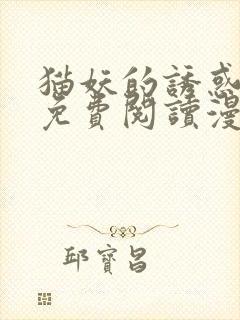 猫妖的誘惑
免費閱讀漫
邱寶昌